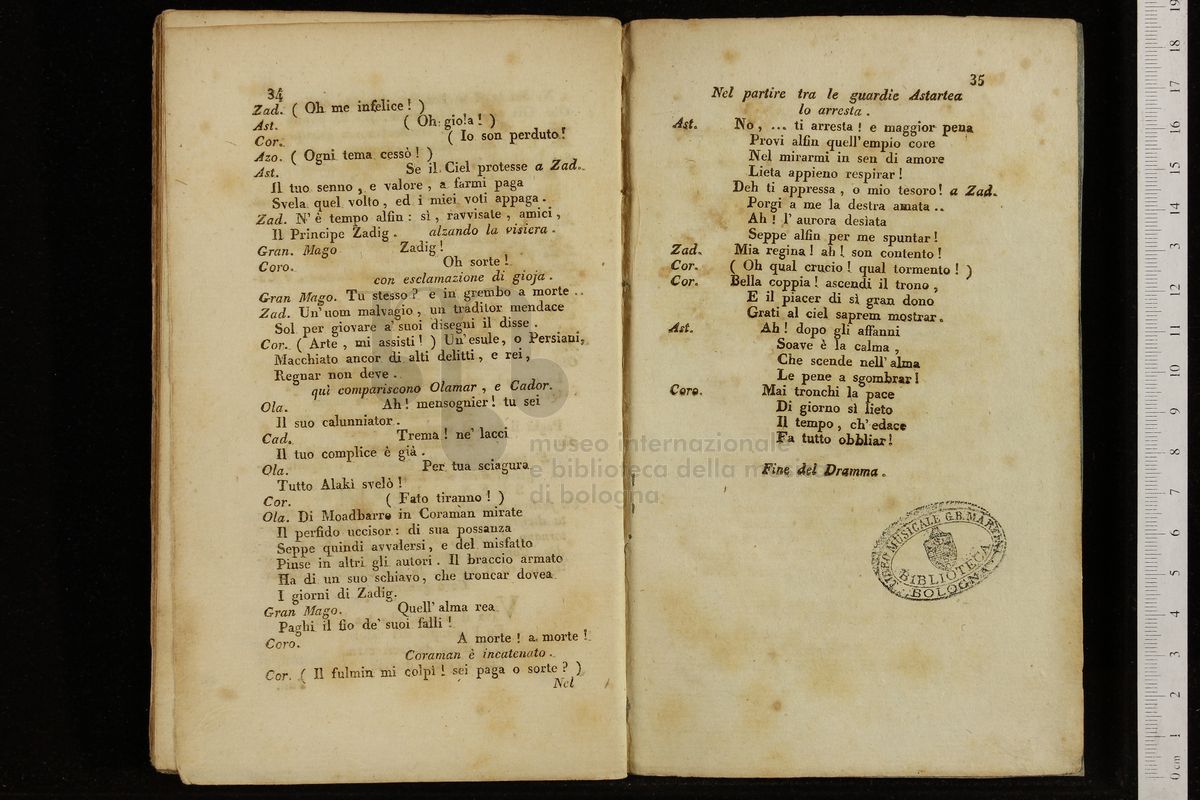 34
Zad. ( Oh me infelice ! )
Ast. ( Oh gioia ! )
Cor. ( Io son perduto !
Azo. ( Ogni tema cessò ! )
Ast. Se il Ciel protesse a Zad.
Il tuo senno , e valore , a farmi paga
Svela quel volto , ed i miei voti appaga .
Zad. N' è tempo alfin : sì , ravvisate , amici ,
Il Principe Zadig . alzando la visiera .
Gran. Mago Zadig !
Coro. Oh sorte !
con esclamazione di gioja .
Gran Mago. Tu stesso ? e in grembo a morte ..
Zad. Un' uom malvagio , un traditor mendace
Sol per giovare a' suoi disegni il disse .
Cor. ( Arte , mi assisti ! ) Un' esule , o Persiani,
Macchiato ancor di alti delitti , e rei ,
Regnar non deve .
quì compariscono Olamar , e Cador.
Ola. Ah ! mensognier ! tu sei
Il suo calunniator .
Cad. Trema ! ne' lacci
Il tuo complice è già .
Ola. Per tua sciagura
Tutto Alakì svelò !
Cor. ( Fato tiranno ! )
Ola. Di Moadbarre in Coraman mirate
Il perfido uccisor : di sua possanza
Seppe quindi avvalersi , e del misfatto
Pinse in altri gli autori . Il braccio armato
Ha di un suo schiavo , che troncar dovea
I giorni di Zadig.
Gran Mago. Quell' alma rea
Paghi il fio de' suoi falli !
Coro. A morte ! a morte !
Coraman è incatenato .
Cor. ( Il fulmin mi colpì ! sei paga o sorte ? )
Nel
35
Nel partire tra le guardie Astartea
lo arresta .
Ast. No , ... ti arresta ! e maggior pena
Provi alfin quell' empio core
Nel mirarmi in sen di amore
Lieta appieno respirar !
Deh ti appressa , o mio tesoro ! a Zad.
Porgi a me la destra amata ..
Ah ! l' aurora desìata
Seppe alfin per me spuntar !
Zad. Mia regina ! ah ! son contento !
Cor. ( Oh qual crucio ! qual tormento ! )
Cor. Bella coppia ! ascendi il trono ,
E il piacer di sì gran dono
Grati al ciel saprem mostrar .
Ast. Ah ! dopo gli affanni
Soave è la calma ,
Che scende nell' alma
Le pene a sgombrar !
Coro. Mai tronchi la pace
Di giorno sì lieto
Il tempo , ch' edace
Fa tutto obbliar !
Fine del Dramma .
museo internazionale
e biblioteca della musica
di bologna
LICEO MUSICALE G.B. MARTINI
BIBLIOTECA
BOLOGNA
0 cm 1 2 3 4 5 6 7 8 9 10 11 12 13 14 15 16 17 18 19